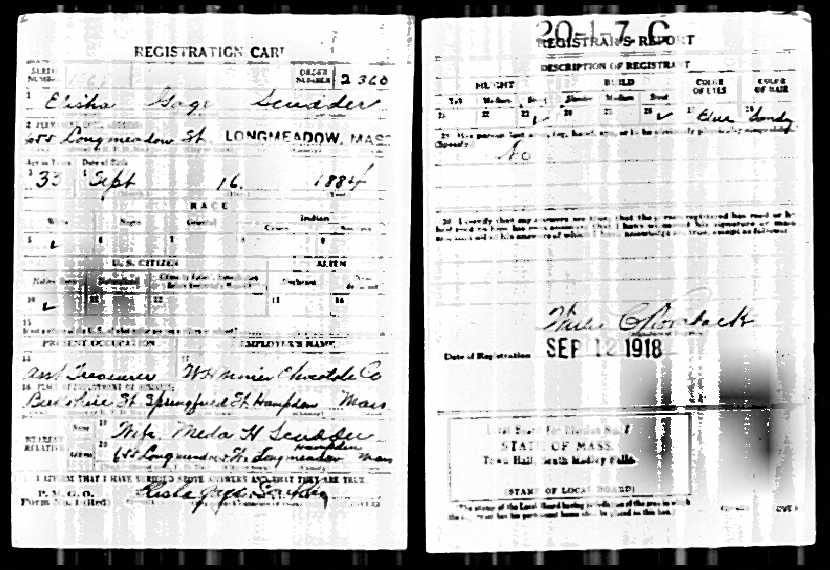 REGISTRATION CARD
SERIAL NUMBER ORDER NUMBER 2360
1 Elisha Gage Scudder
2 Longmeadow St. LONGMEADOW, MASS
Age in Years Date of Birth
3 33 4 Sept 16. 1884
RACE
White Negro Oriental Indian
5 6 7 8 9
U. S. CITIZEN ALIEN
Native Born Naturalized Declarant
10 11 12
15
PRESENT OCCUPATION EMPLOYER'S NAME
16 Asst Treasurer 17 Chocolate Co
18 PLACE OF EMPLOYMENT OR BUSINESS
St. Springfield Hampden Mass
NEAREST RELATIVE Name 19 Wife Meda H Scudder
Address 20 Longmeadow St. Longmeadow Hampden Mass
I AFFIRM THAT I HAVE VERIFIED ABOVE ANSWERS AND THAT THEY ARE TRUE
P. M. G. O.
Form No. 1 (Red) Elisha Gage Scudder
20-1-7. C
REGISTRAR'S REPORT
DESCRIPTION OF REGISTRANT
HEIGHT BUILD COLOR OF EYES COLOR OF HAIR
Tall Medium Short Slender Medium Stout
21 22 23 24 25 26 27 Blue 28 Sandy
29 Has person lost arm, leg, hand, eye, or is he obviously physically disqualified?
(Specify.) No
30 I certify that my answers are true; that the person registered has read or has
had read to him his own answers; that I have witnessed his signature or mark
Date of Registration SEP 12 1918
Local Board for Division No.
STATE OF MASS.
Town Hall, South Hadley Falls
(STAMP OF LOCAL BOARD)
(The stamp of the Local Board having jurisdiction of the area in which
the registrant has his permanent home shall be placed in this box.)